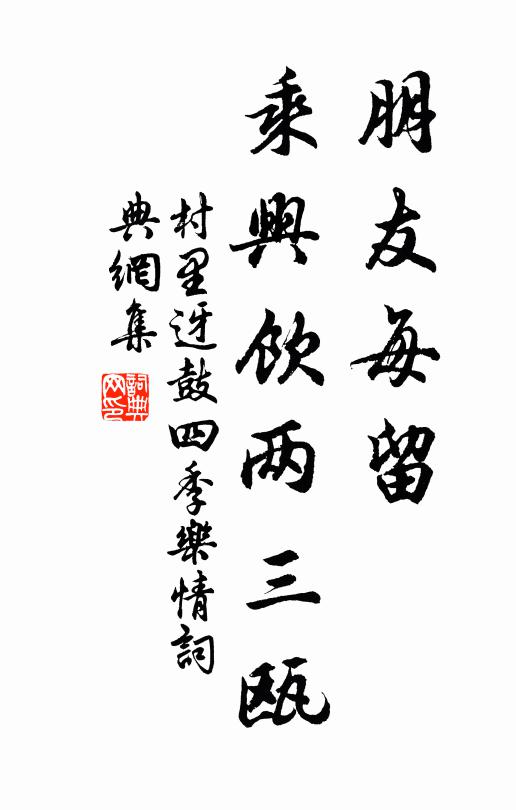 朋友每留
乘興飲两三瓯
村里迓鼓四季樂情詞
典網集
詞典网印